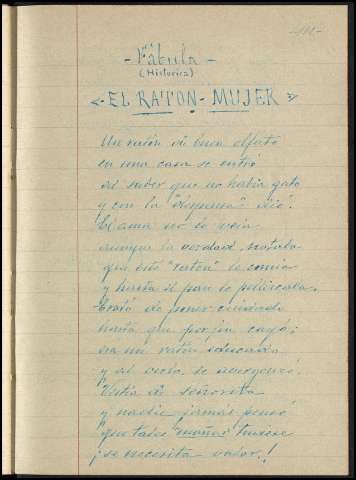 - Fábula -
(Histórica)
EL RATON - MUJER
Un ratón de buen olfato
en una casa se entró
al saber que no había gato
y con la "despensa" dió.
El ama no lo veía
aunque la verdad, notaba
que este "ratón" le comía
y hasta el pan le pellizcaba.
Trató de poner cuidado
hasta que por fin cayó;
era un ratón educado
y al verla se avergonzó.
Vestía de señorita
y nadie jamás pensó
que tales "mañas" tuviese
¡se necesita valor!